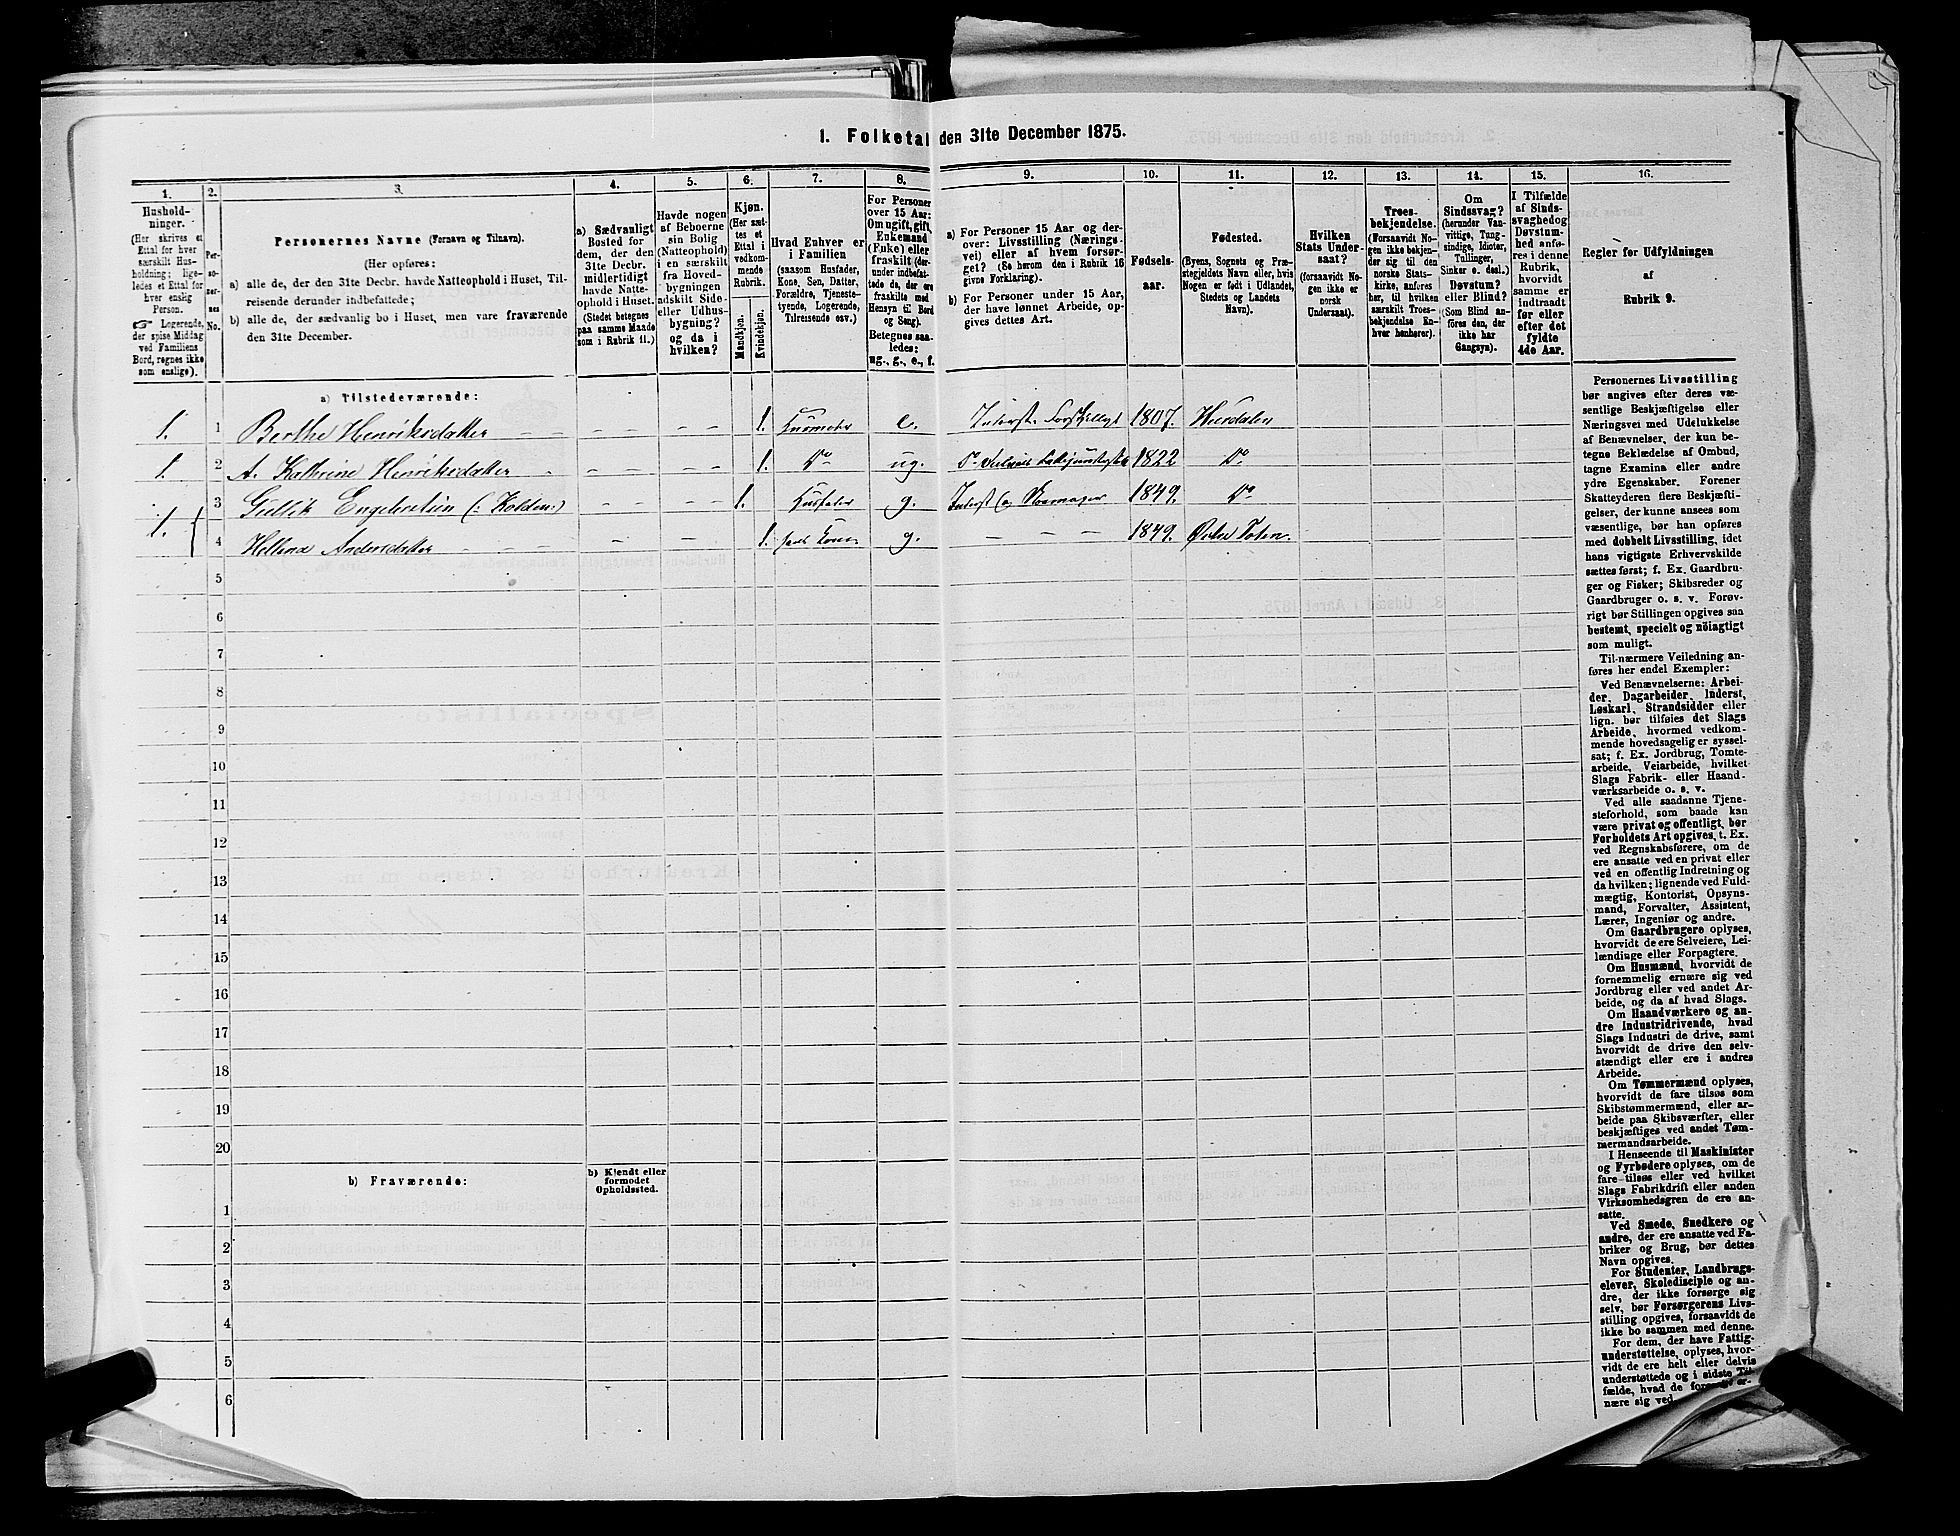 1. Folketal den 31te December 1875.
1.
2.
3.
4.
5.
6.
7.
8.
9.
10.
11.
12.
13.
14.
15.
16.
Hushold-
ninger.
(Her skrives et
Ettal for hver
særskilt Hus-
holdning; lige-
ledes et Ettal for
hver enslig
Person.
☞ Logerende,
der spise Middag
ved Familiens
Bord, regnes ikke
som enslige).
Per-
so-
ner-
nes
No.
Personernes Navne (Fornavn og Tilnavn).
(Her opføres:
a) alle de, der den 31te Decbr. havde Natteophold i Huset, Til-
reisende derunder indbefattede;
b) alle de, der sædvanlig bo i Huset, men vare fraværende
den 31te December.
a) Sædvanligt
Bosted for
dem, der den
31te Decbr.
midlertidigt
havde Natte-
ophold i Huset.
(Stedet betegnes
paa samme Maade
som i Rubrik 11.)
Havde nogen
af Beboerne
sin Bolig
(Natteophold)
i en særskilt
fra Hoved-
bygningen
adskilt Side-
eller Udhus-
bygning?
og da i
hvilken?
Kjøn.
(Her sæt-
tes et
Ettal i
vedkom-
mende
Rubrik.
Mandkjøn.
Kvindekjøn.
Hvad Enhver er
i Familien
(saasom Husfader,
Kone, Søn, Datter,
Forældre, Tjeneste-
tyende, Logerende,
Tilreisende osv.)
For Personer
over 15 Aar:
Om ugift, gift,
Enkemand
(Enke) eller
fraskilt (der-
under indbefat-
tede da, der ere
fraskilte med
Hensyn til Bord
og Seng).
Betegnes saa-
ledes:
ug., g., e., f.
a) For Personer 15 Aar og der-
over: Livsstilling (Nærings-
vei) eller af hvem forsør-
get? (Se herom den i Rubrik 16
givne Forklaring).
b) For Personer under 15 Aar,
der have lønnet Arbeide, op-
gives dettes Art.
Fødsels-
aar.
Fødested.
(Byens, Sognets og Præ-
stegjeldets Navn eller, hvis
Nogen er født i Udlandet,
Stedets og Landets
Navn).
Hvilken
Stats Under-
saat?
(forsaavidt No-
gen ikke er
norsk
Undersaat).
Troes-
bekjendelse.
(Forsaavidt No-
gen ikke bekjen-
der sig til den
norske Stats-
kirke, anføres
her, til hvilken
særskilt Troes-
bekjendelse En-
hver henhører).
Om
Sindssvag?
(herunder Van-
vittige, Tung-
sindige, Idioter,
Tullinger,
Sinker o. desl.)
Døvstum?
eller Blind?
(Som Blind an-
føres den, der
ikke har
Gangsyn).
I Tilfælde
af Sinds-
svaghed og
Døvstum-
hed anfø-
res i denne
Rubrik,
hvorvidt
samme er
indtraadt
før eller
efter det
fyldte
4de Aar.
Regler for Udfyldningen
af
Rubrik 9.
a) Tilstedeværende:
1. 1 Berthe Henriksdatter 1. Husmoder e. 1807. Hurdalen
1. 2 A. Kathrine Henriksdatter 1. Do ug. 1822 Do
1. 3 Gullik Engebretsen (: Kolden:) 1. Husfader g. Inderst 1849. Do
4 Hellena Andersdatter 1. hans Kone g. 1849. Østre Toten.
5
6
7
8
9
10
11
12
13
14
15
16
17
18
19
20
b) Fraværende:
b) Kjendt eller
formodet
Opholdssted.
1
2
3
4
5
6
Personernes Livsstilling
bør angives efter deres væ-
sentlige Beskjæftigelse eller
Næringsvei med Udelukkelse
af Benævnelser, der kun be-
tegne Beklædelse af Ombud,
tagne Examina eller andre
ydre Egenskaber. Forener
Skatteyderen flere Beskjæfti-
gelser, der kunne ansees som
væsentlige, bør han opføres
med dobbelt Livsstilling, idet
hans vigtigste Erhvervskilde
sættes først; f. Ex. Gaardbru-
ger og Fisker; Skibsreder og
Gaardbruger o. s. v. Forøv-
rigt bør Stillingen opgives saa
bestemt, specielt og nöiagtigt
som muligt.
Til nærmere Veiledning an-
føres her endel Exempler:
Ved Benævnelserne: Arbei-
der, Dagarbeider, Inderst,
Løskarl, Strandsidder eller
lign. bør tilføies det Slags
Arbeide, hvormed vedkom-
mende hovedsagelig er syssel-
sat; f. Ex. Jordbrug, Tomte-
arbeide, Veiarbeide, hvilket
Slags Fabrik- eller Haand-
værksarbeide o. s. v.
Ved alle saadanne Tjene-
steforhold, som baade kan
være privat og offentligt, bør
Forholdets Art opgives, t. Ex.
ved Regnskabsførere, om de
ere ansatte ved en privat eller
ved en offentlig Indretning og
da hvilken; lignende ved Fuld-
mægtig, Kontorist, Opsyns-
mand, Forvalter, Assistent,
Lærer, Ingeniør og andre.
Om Gaardbrugere oplyses,
hvorvidt de ere Selveiere, Lei-
lændinge eller Forpagtere.
Om Husmænd, hvorvidt de
fornemmelig ernære sig ved
Jordbrug eller ved andet Ar-
beide, og da af hvad Slags.
Om Haandværkere og an-
dre Industridrivende, hvad
Slags Industri de drive, samt
hvorvidt de drive den selv-
stændigt eller ere i andres
Arbeide.
Om Tømmermænd oplyses,
hvorvidt de fare tilsøs som
Skibstømmermænd, eller ar-
beide paa Skibsværfter, eller
beskjæftiges ved andet Tøm-
mermandsarbeide.
I Henseende til Maskinister
og Fyrbødere oplyses, om de
fare tilsøs eller ved hvilket
Slags Fabrikdrift eller anden
Virksomhedsgren de ere an-
satte.
Ved Smede, Snedkere og
andre, der ere ansatte ved Fa-
briker og Brug, bør dettes
Navn opgives.
For Studenter, Landbrugs-
elever, Skoledisciple og an-
dre, der ikke forsørge sig
selv, bør Forsørgerens Livs-
stilling opgives, forsaavidt de
ikke bo sammen med denne.
For dem, der have Fattig-
understøttelse, oplyses, hvor-
vidt de ere helt eller delvis
understøttede og i sidste Til-
fælde, hvad de forøvrigt er-
nære sig ved.